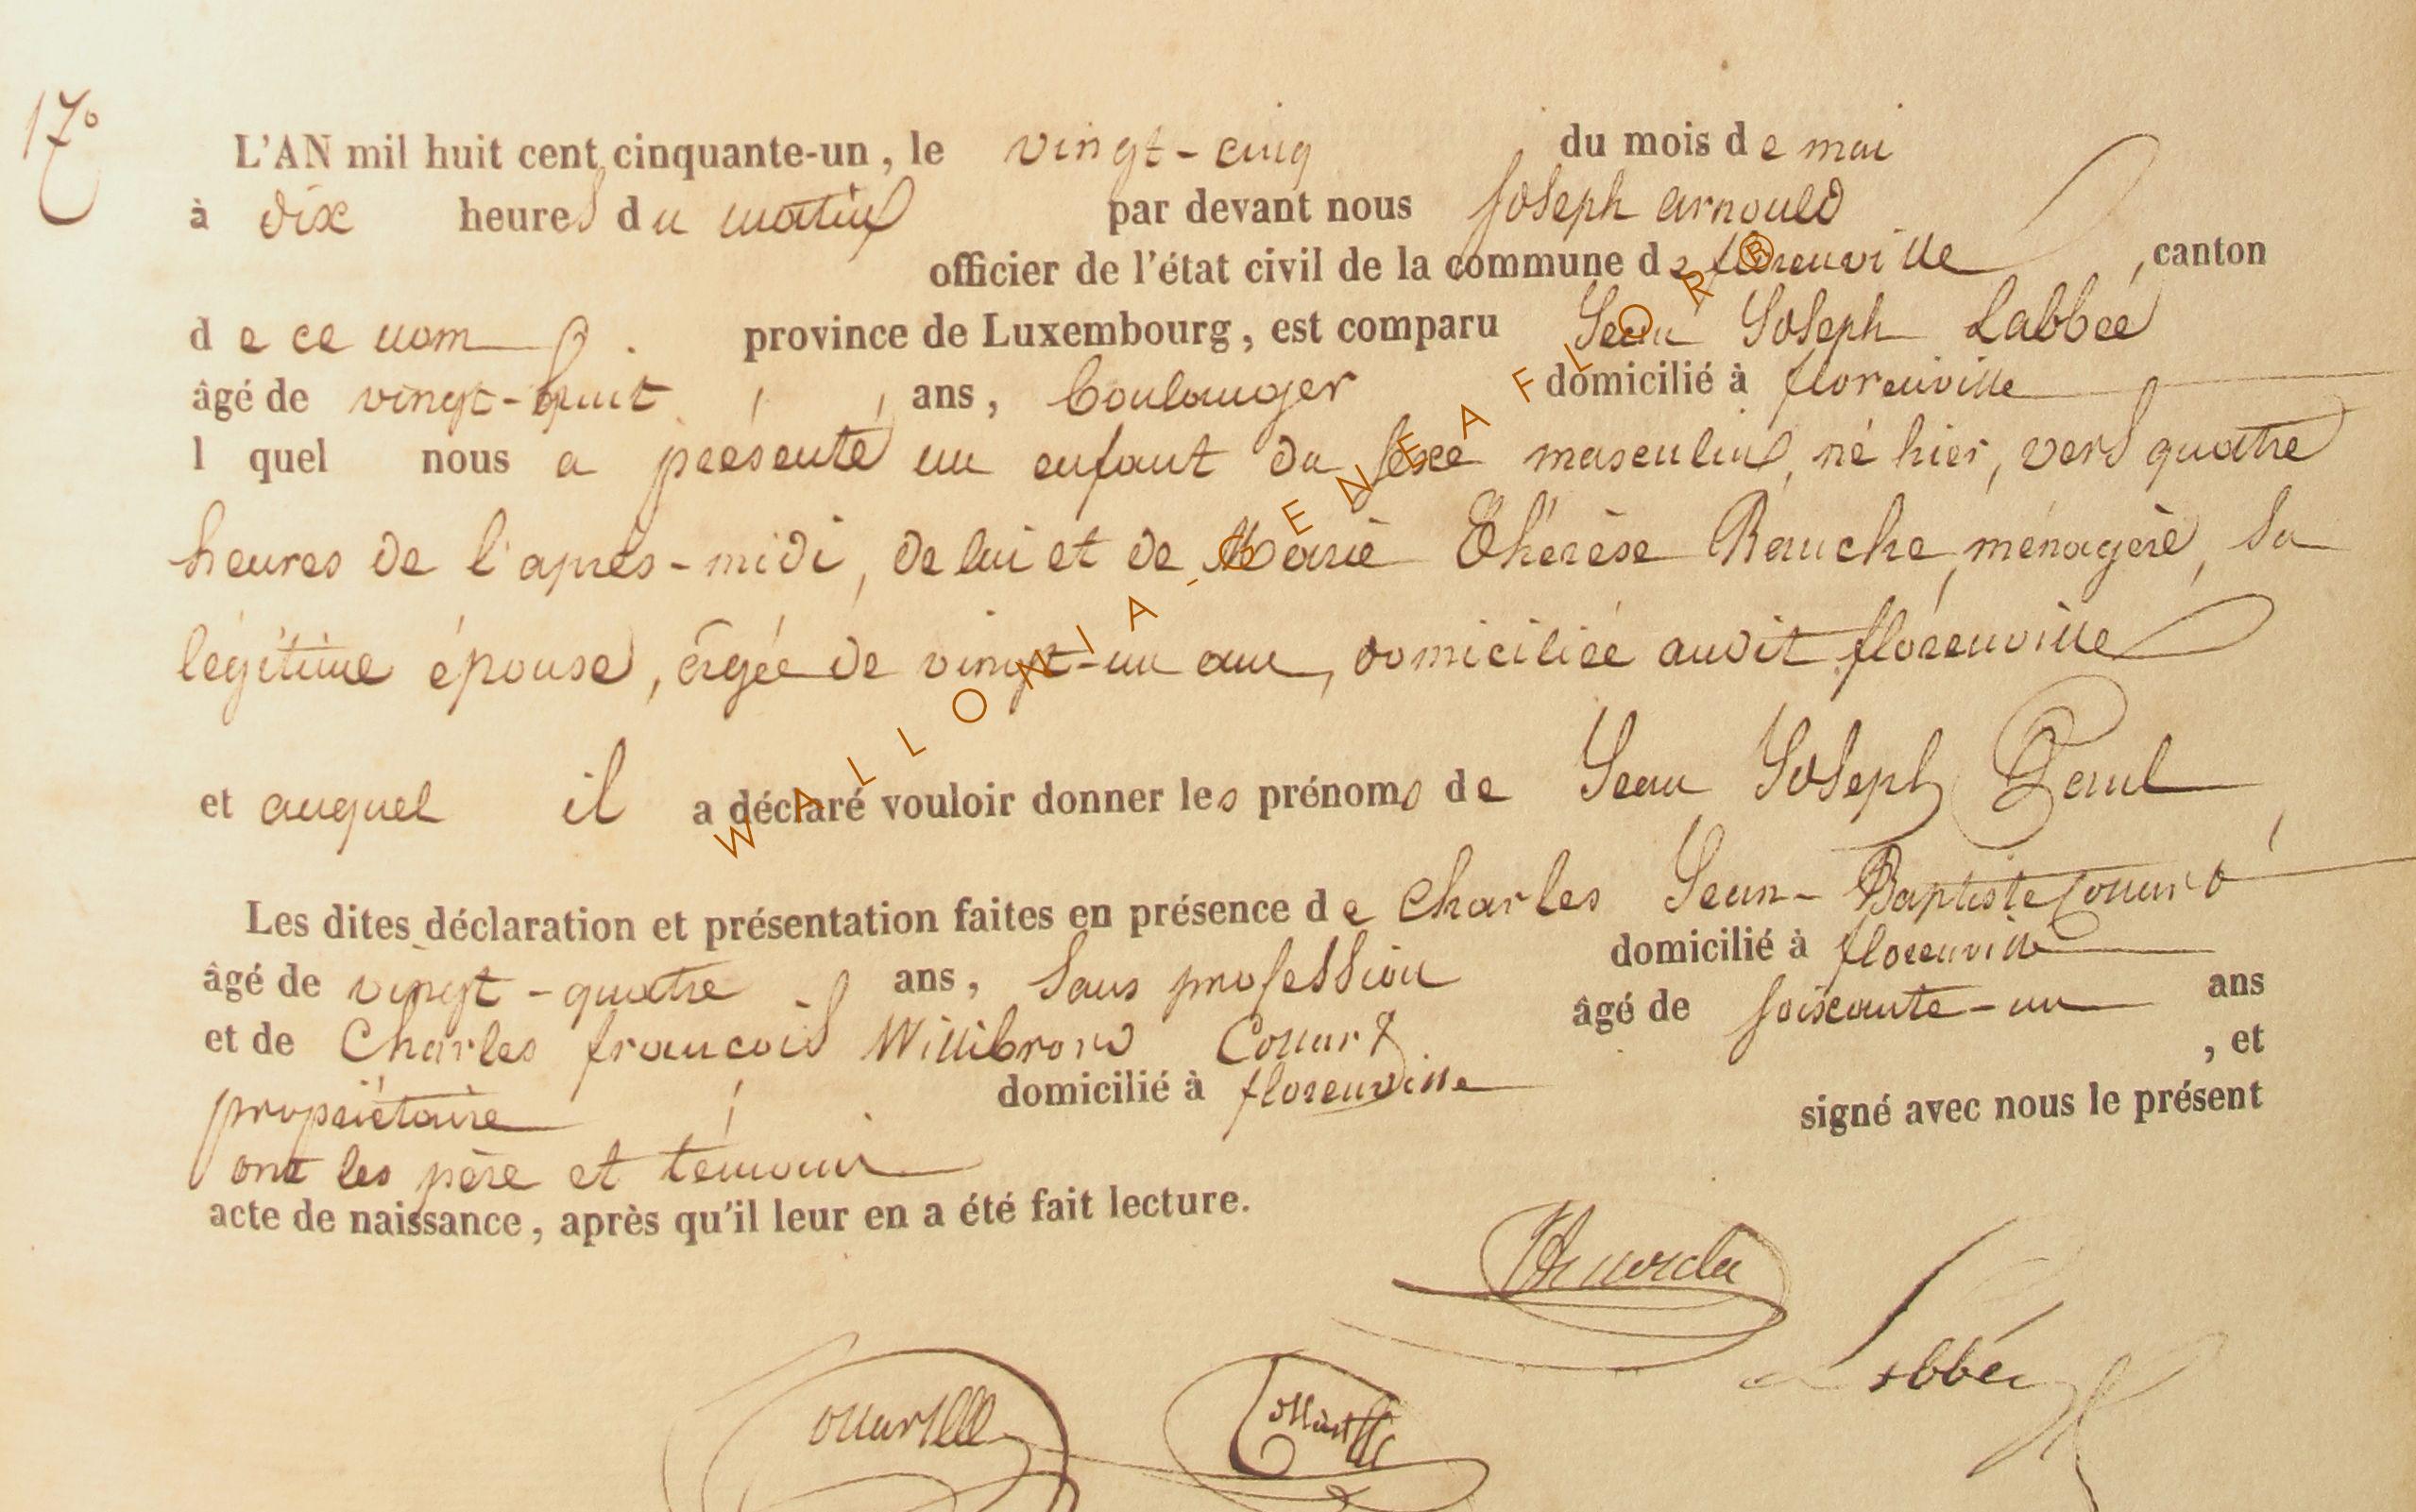 17°
L'AN mil huit cent cinquante-un, le vingt-cinq du mois de mai
à dix heures du matin par devant nous Joseph arnould
officier de l'état civil de la commune de florenville, canton
de ce nom. province de Luxembourg, est comparu Jean Joseph Labbée
âgé de vingt-huit ans, boulanger domicilié à florenville
l quel nous a présenté un enfant du sexe masculin, né hier, vers quatre
heures de l'après-midi, de lui et de Marie Thérèse Bauche, ménagère, sa
légitime épouse, âgée de vingt-un ans, domiciliée audit florenville
et auquel il a déclaré vouloir donner les prénoms de Jean Joseph Paul
Les dites déclaration et présentation faites en présence de Charles Jean-Baptiste
âgé de vingt-quatre ans, sans profession domicilié à florenville
et de Charles françois Willibrord âgé de soixante-un ans
propriétaire domicilié à florenville, et
ont les père et témoins signé avec nous le présent
acte de naissance, après qu'il leur en a été fait lecture.
Labbée
WALLONIA-GENEAFLOR®